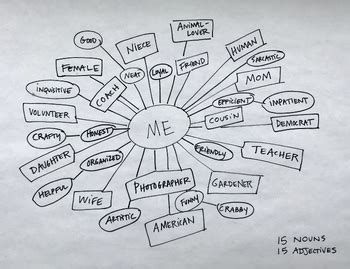 GOOD
NIECE
ANIMAL-
LOVER
HUMAN
FEMALE
NEAT
LOYAL
FRIEND
SARCASTIC
INQUISITIVE
COACH
MOM
VOLUNTEER
EFFICIENT
IMPATIENT
CRAFTY
HONEST
ME
COUSIN
DEMOCRAT
DAUGHTER
ORGANIZED
FRIENDLY
TEACHER
HELPFUL
WIFE
PHOTOGRAPHER
GARDENER
ARTISTIC
FUNNY
CRABBY
AMERICAN
15 NOUNS
15 ADJECTIVES